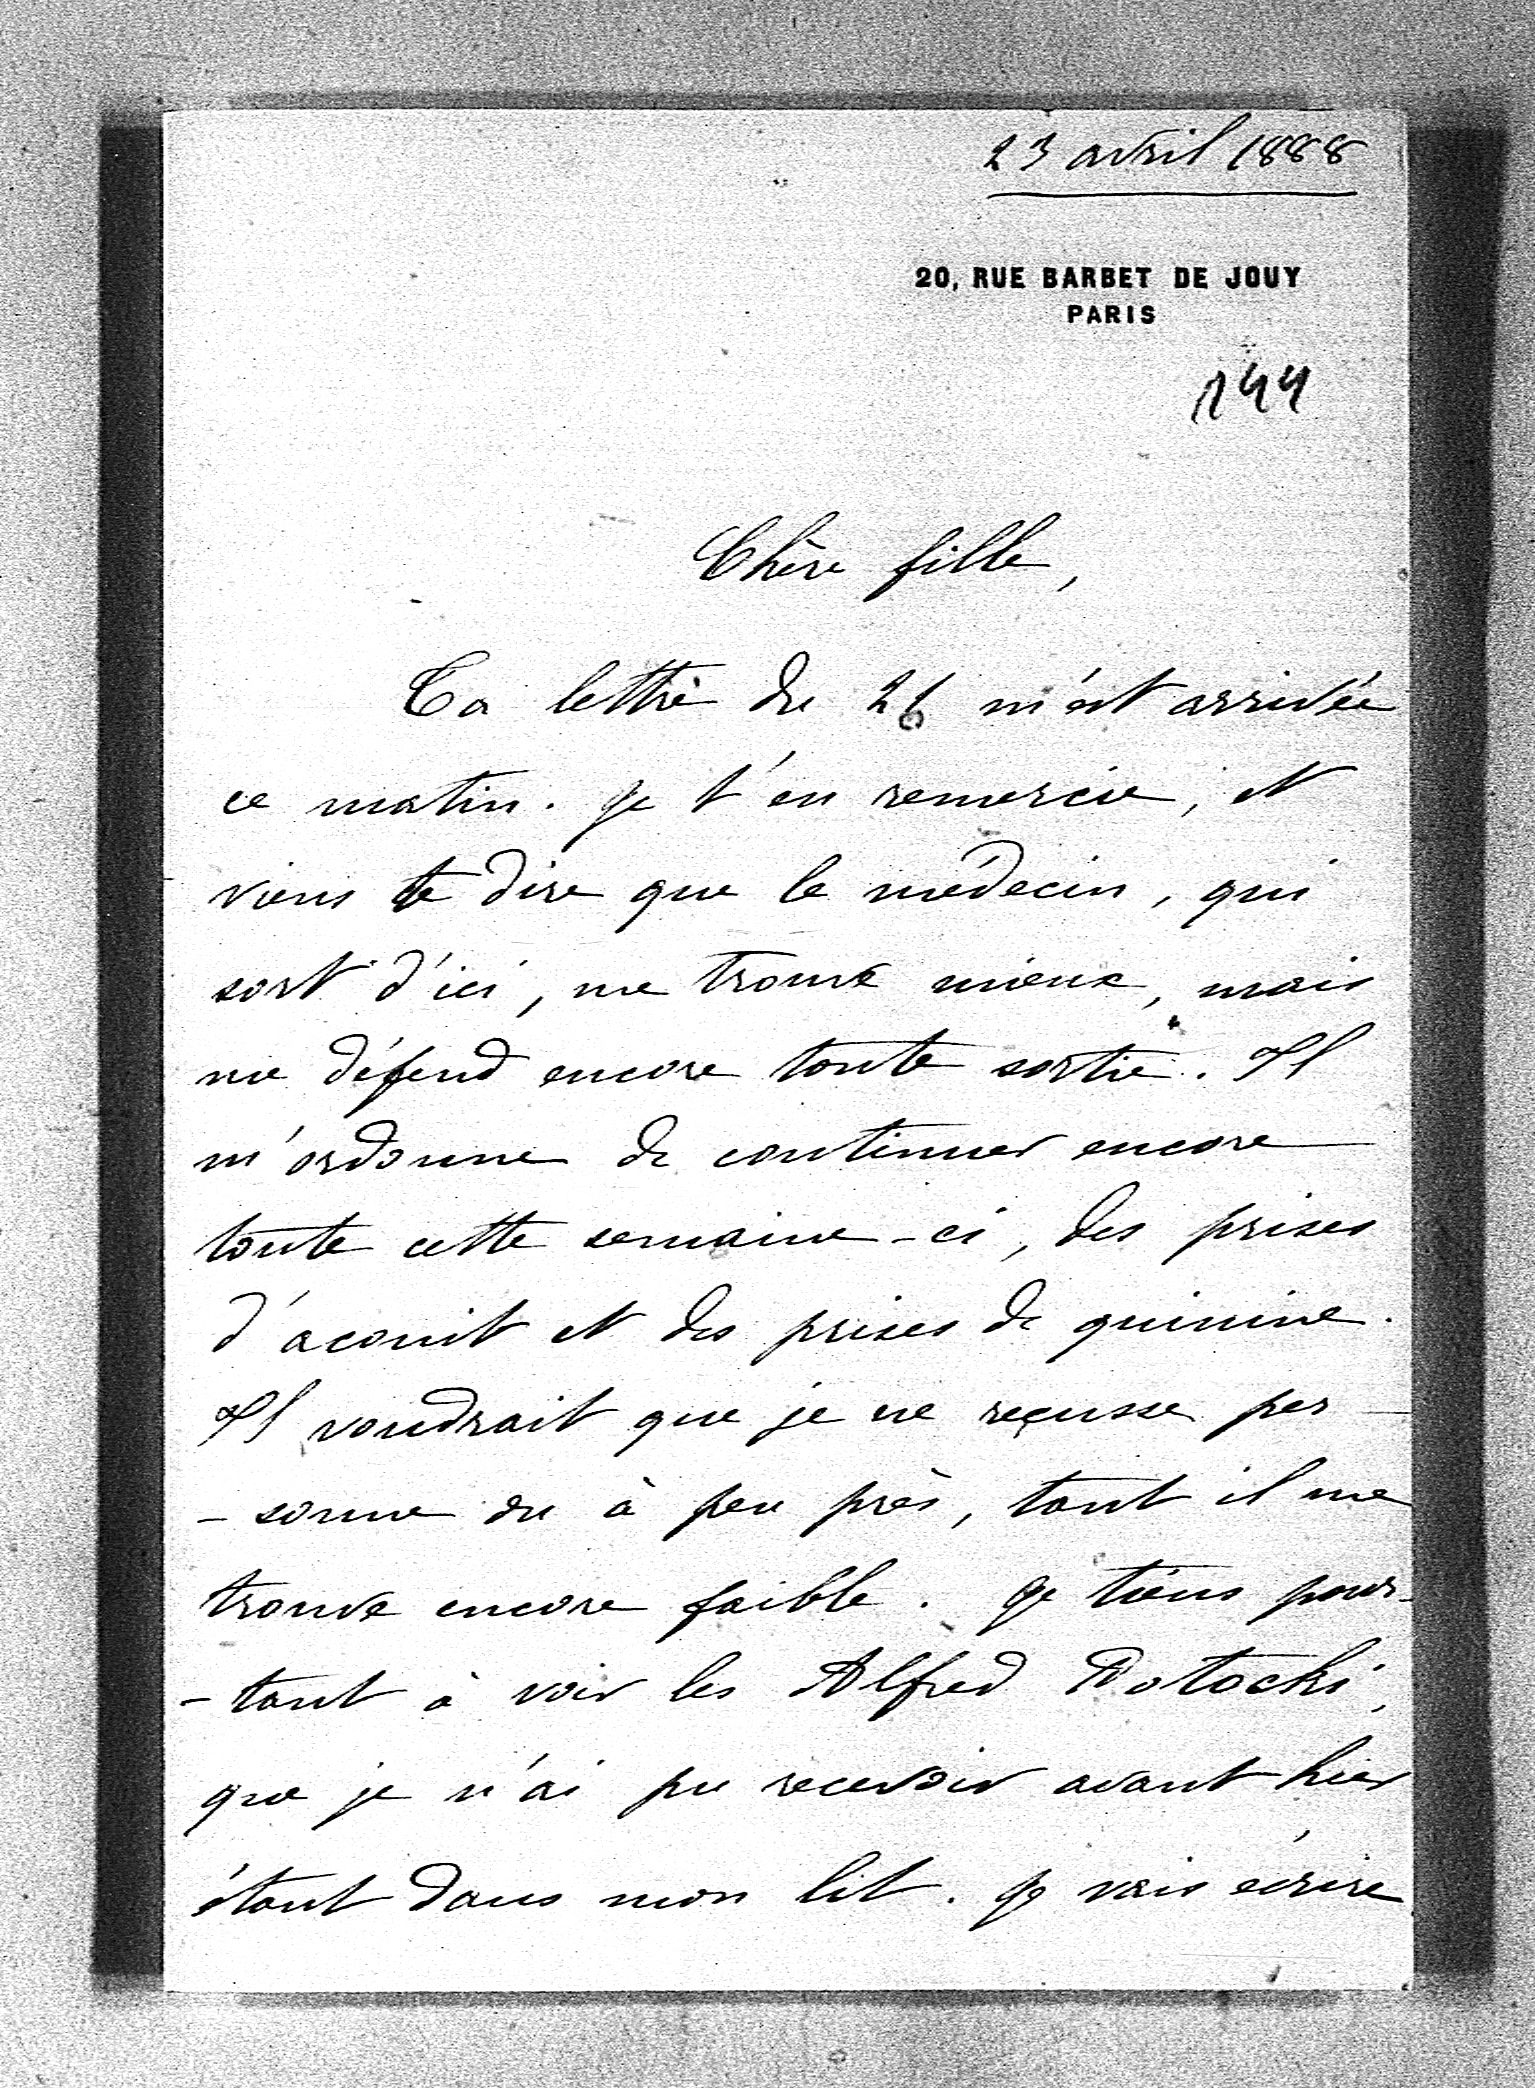 23 avril 1888
20, RUE BARBET DE JOUY
PARIS
144
Chère fille,
Ta lettre du 21 m'est arrivée
ce matin. Je t'en remercie, et
viens te dire que le médecin, qui
sort d'ici, me trouve mieux, mais
me défend encore toute sortie. Il
m'ordonne de continuer encore
toute cette semaine-ci, des prises
d'aconit et des prises de quinine.
Il voudrait que je ne reçusse per-
-sonne ou à peu près, tant il me
trouve encore faible. Je tiens pour-
-tant à voir les Alfred Potocki,
que je n'ai pu recevoir avant hier
étant dans mon lit. Je vais écrire